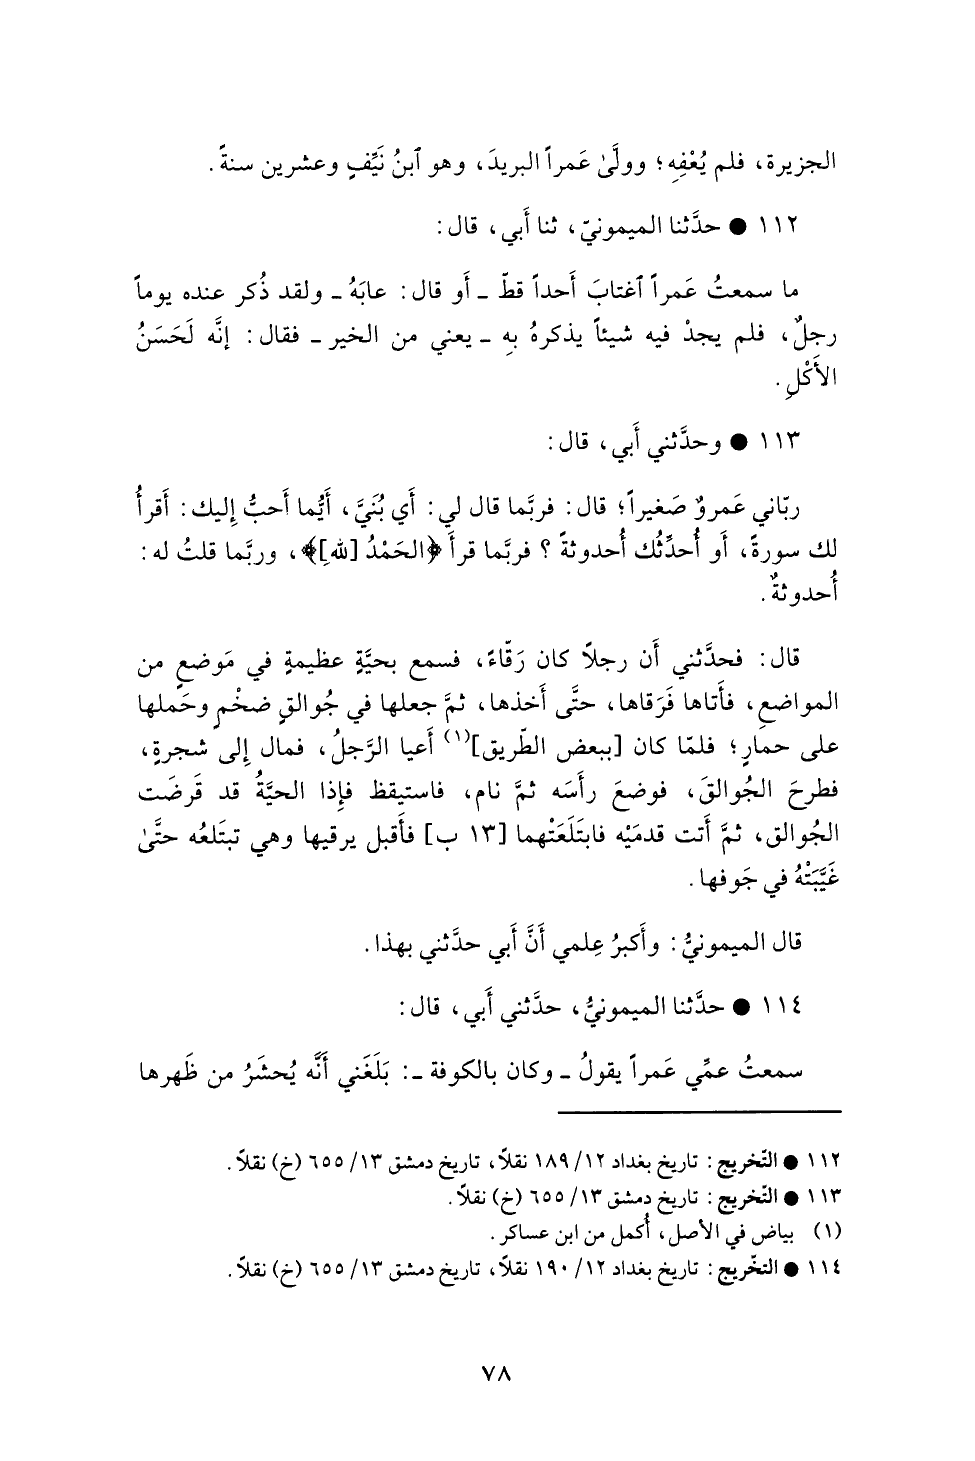 الجزيرة، فلم يُعْفِهِ؛ وولَّىٰ عَمراً البريدَ، وهو ٱبنُ نَيِّفٍ وعشرين سنةً.
١١٢ ● حدَّثنا الميمونيّ، ثنا أَبي، قال:
ما سمعتُ عَمراً ٱغتابَ أَحداً قطّ ـ أَو قال: عابَهُ ـ ولقد ذُكر عنده يوماً
رجلٌ، فلم يجدْ فيه شيئاً يذكرهُ بِهِ ـ يعني من الخير ـ فقال: إنَّه لَحَسَنُ
الأَكْلِ.
١١٣ ● وحدَّثني أَبي، قال:
ربّاني عَمروٌ صَغيراً؛ قال: فربَّما قال لي: أَي بُنَيَّ، أَيُّما أَحبُّ إِليك: أَقرأُ
لك سورةً، أَو أُحدِّثُك أُحدوثةً؟ فربَّما قرأَ ﴿الحَمْدُ [للهِ]﴾، وربَّما قلتُ له:
أُحدوثةٌ.
قال: فحدَّثني أَن رجلاً كان رَقّاءً، فسمع بحيَّةٍ عظيمةٍ في مَوضعٍ من
المواضعِ، فأَتاها فَرَقاها، حتَّى أَخذها، ثمَّ جعلها في جُوالقٍ ضخْمٍ وحَملها
على حمارٍ؛ فلمّا كان [ببعض الطّريق](١) أَعيا الرَّجلُ، فمال إِلى شجرةٍ،
فطرحَ الجُوالقَ، فوضعَ رأسَه ثمَّ نام، فاستيقظ فإِذا الحيَّةُ قد قَرضَت
الجُوالق، ثمَّ أَتت قدمَيْه فابتَلَعَتْهما [١٣ ب] فأَقبل يرقيها وهي تبتَلعُه حتَّىٰ
غَيَّبَتْهُ في جَوفها.
قال الميمونيُّ: وأَكبرُ عِلمي أَنَّ أَبي حدَّثني بهذا.
١١٤ ● حدَّثنا الميمونيُّ، حدَّثني أَبي، قال:
سمعتُ عمِّي عَمراً يقولُ ـ وكان بالكوفة ـ: بَلَغَني أَنَّه يُحشَرُ من ظَهرها
١١٢ ● التّخريج: تاريخ بغداد ١٢/ ١٨٩ نقلاً، تاريخ دمشق ١٣/ ٦٥٥ (خ) نقلاً.
١١٣ ● التّخريج: تاريخ دمشق ١٣/ ٦٥٥ (خ) نقلاً.
(١) بياض في الأصل، أُكمل من ابن عساكر.
١١٤ ● التخّريج: تاريخ بغداد ١٢/ ١٩٠ نقلاً، تاريخ دمشق ١٣/ ٦٥٥ (خ) نقلاً.
٧٨